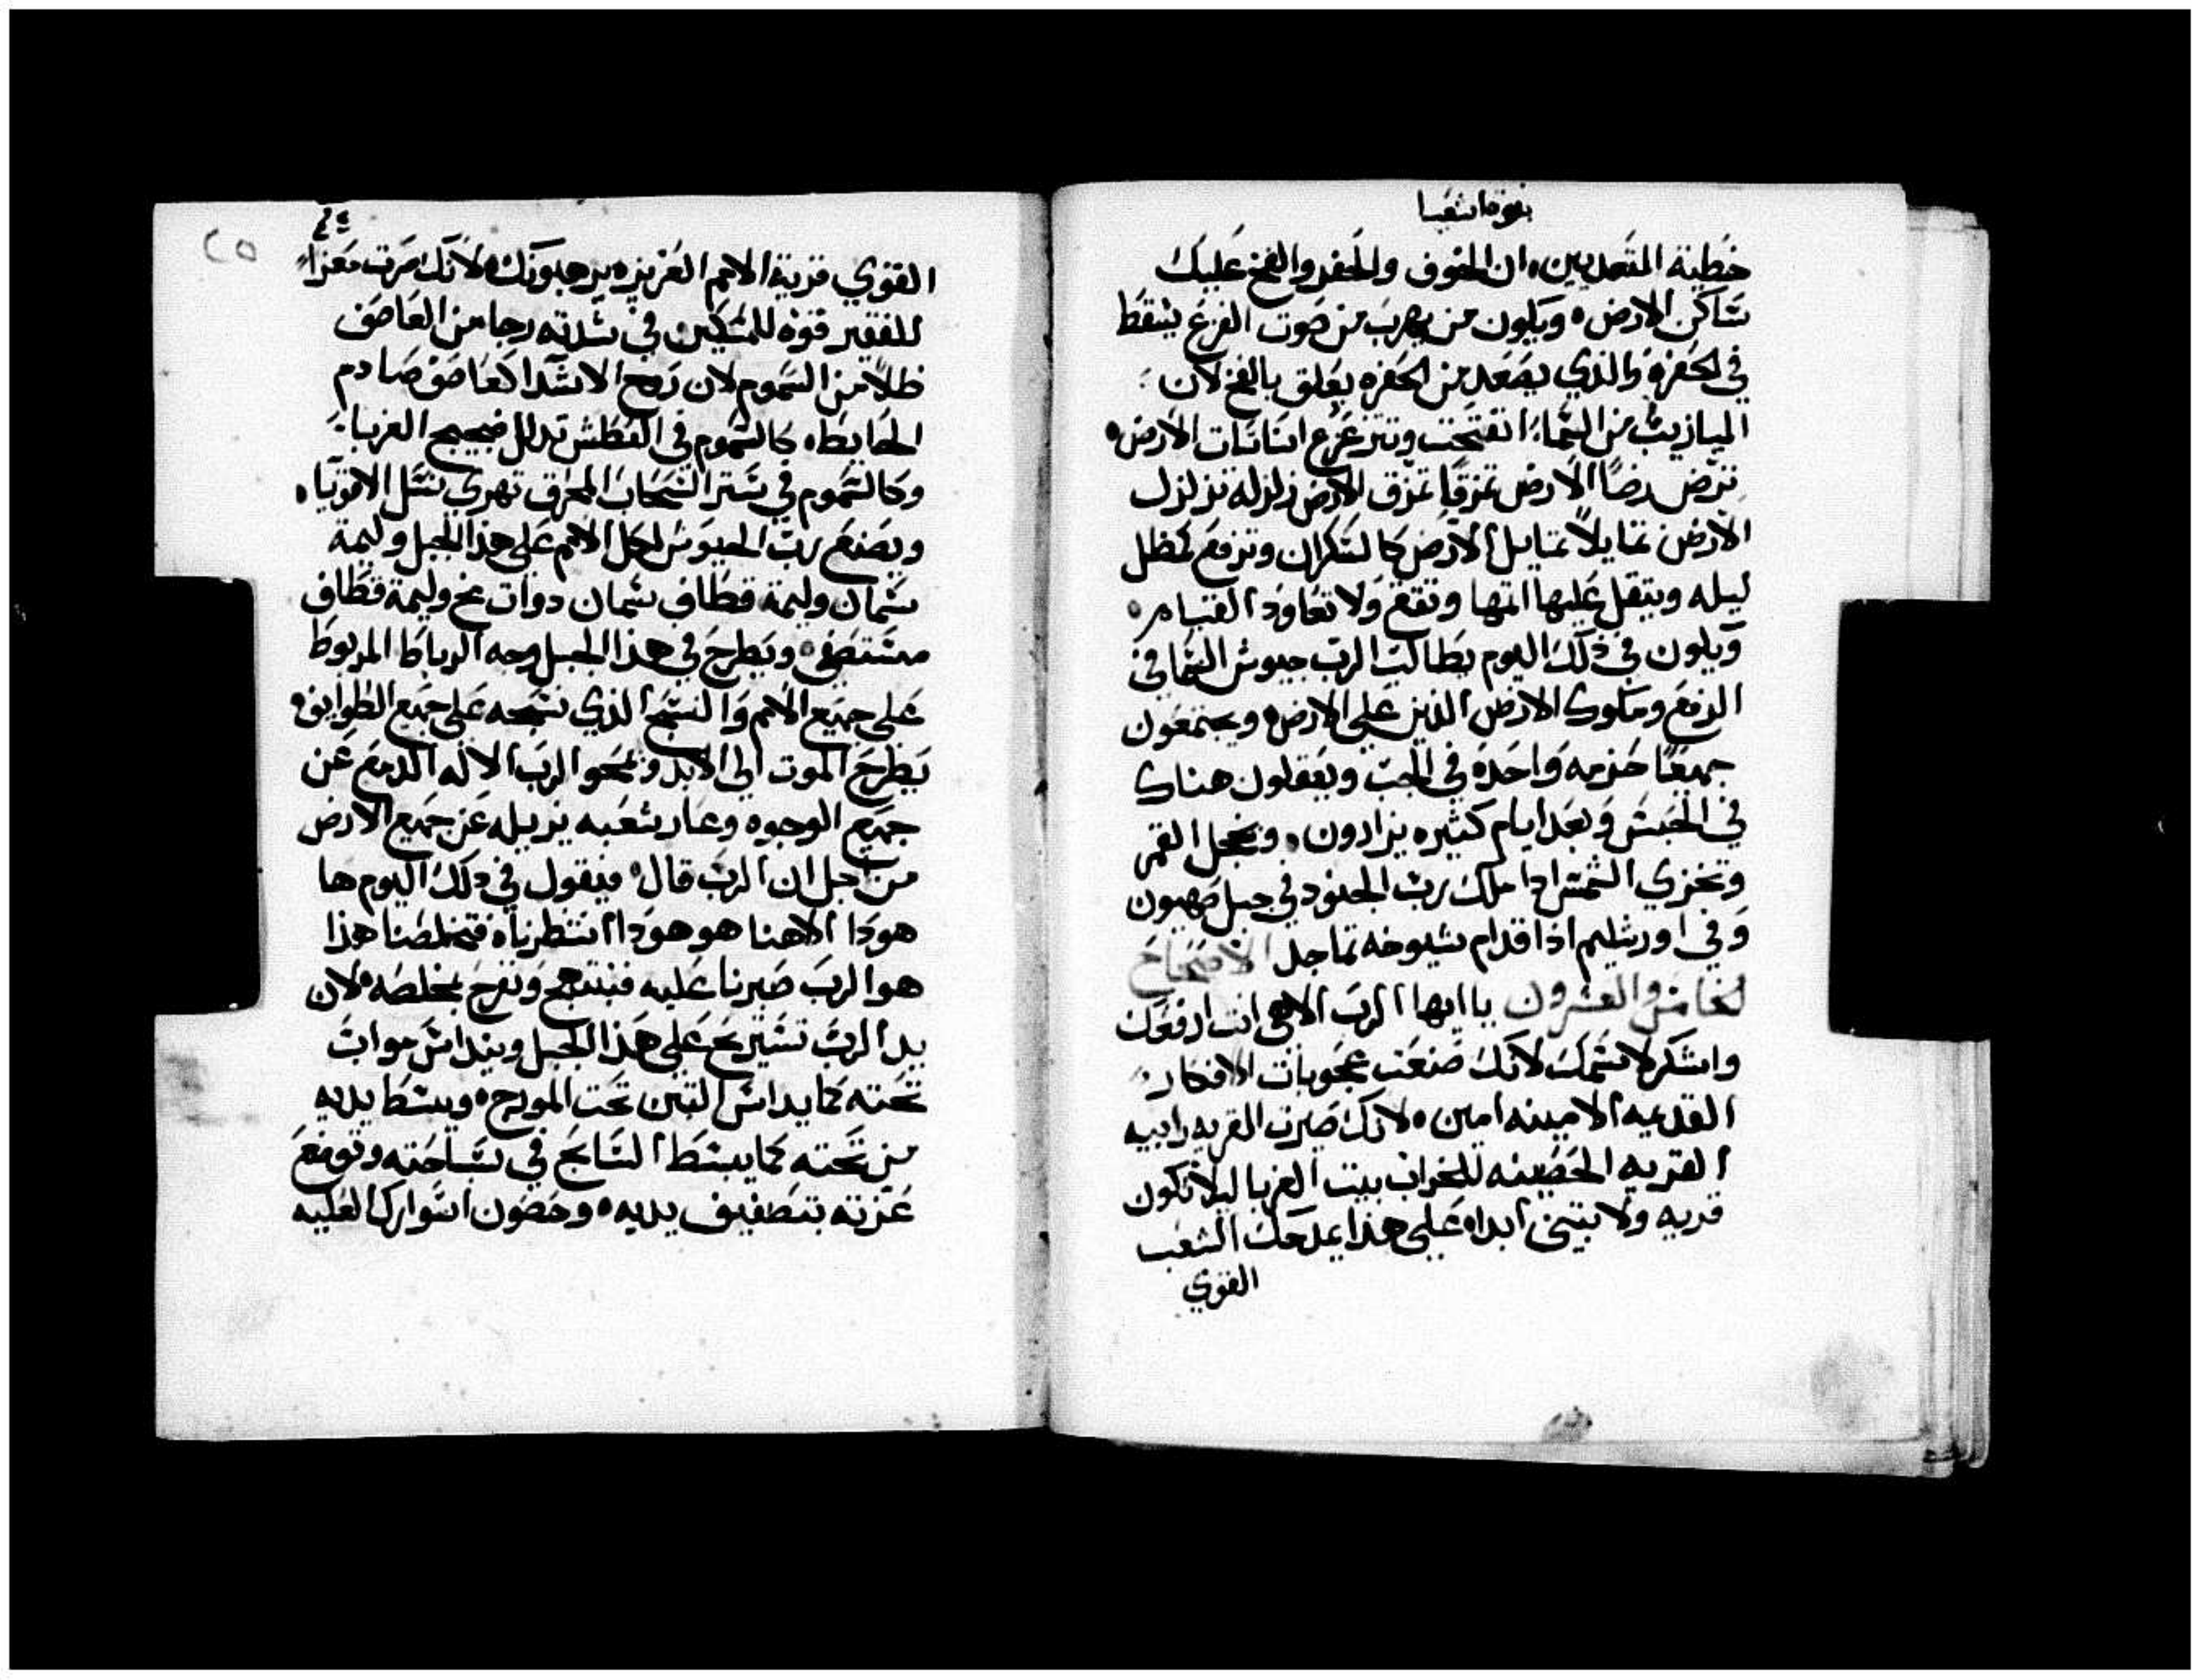 نبوة اشعيا
خطية المتعديين، ان الخوف والحفر والفخ عليك
ساكن الارض، ويكون من يهرب من صوت الفزع يسقط
في الحفرة والذي يصعد من الحفره يعلق بالفخ لان
الميازيب من السما انفتحت وتتزعزع اساسات الارض،
ترض رضاً الارض تمزقاً تمزق الارض زلزله تزلزل
الارض تمايلاً تمايل الارض كالسكران وترفع كمظل
ليله ويثقل عليها اثمها وتقع ولا تعاود القيام،
ويكون في ذلك اليوم يطالب الرب جيوش السما في
الرفع وملوك الارض الذين على الارض، ويجتمعون
جميعاً حزمه واحدة في الجب ويغفلون هناك
في الحبس وبعد ايام كثيره يزارون، ويخجل القمر
وتخزي الشمس اذا ملك رب الجنود في جبل صهيون
وفي اورشليم اذا قدام شيوخه تماجل الاصحاح
الخامس والعشرون يا ايها الرب الاهي انت ارفعك
واشكر لاسمك لانك صنعت عجوبات الافكار
القديمه الامينه امين، لانك صيرت القريه رابيه
القريه الحصينه للخراب بيت الغربا ليلا تكون
قريه ولا يبتنى ابدا، على هذا يمدحك الشعب
القوي
٢٥
القوي قرية الامم العزيزه يرهبونك، لانك صرت معزاً
للفقير قوه للمسكين في شدته رجا من العاصف
ظلاً من السموم لان روح الاشدا كعاصف صادم
الحايط، كالسموم في العطش تدلل ضجيج الغربا،
وكالسموم في ستر السحاب المحرق تهري نسل الاقويا،
ويصنع رب الجيوش لكل الامم على هذا الجبل وليمة
سمان وليمة قطاف سمان دوات مخ وليمة قطاف
مستصفى، ويطرح في هذا الجبل وجه الرباط المربوط
على جميع الامم والنسج الذي نسجه على جميع الطوايف،
يطرح الموت الى الابد ويمحو الرب الاله الدمع عن
جميع الوجوه وعار شعبه يزيله عن جميع الارض
من اجل ان الرب قال، فيقول في ذلك اليوم ها
هودا الاهنا هو هودا انتظرناه فتخلصنا هذا
هو الرب صبرنا عليه فنبتهج ونفرح بخلصه، لان
يد الرب تستريح على هذا الجبل وينداس مواب
تحته كما يداس التبن تحت المورج، ويبسط يديه
من تحته كما يبسط السابح في سباحته وتوضع
عزته بتصفيف يديه، وحصون اسوارك العليه